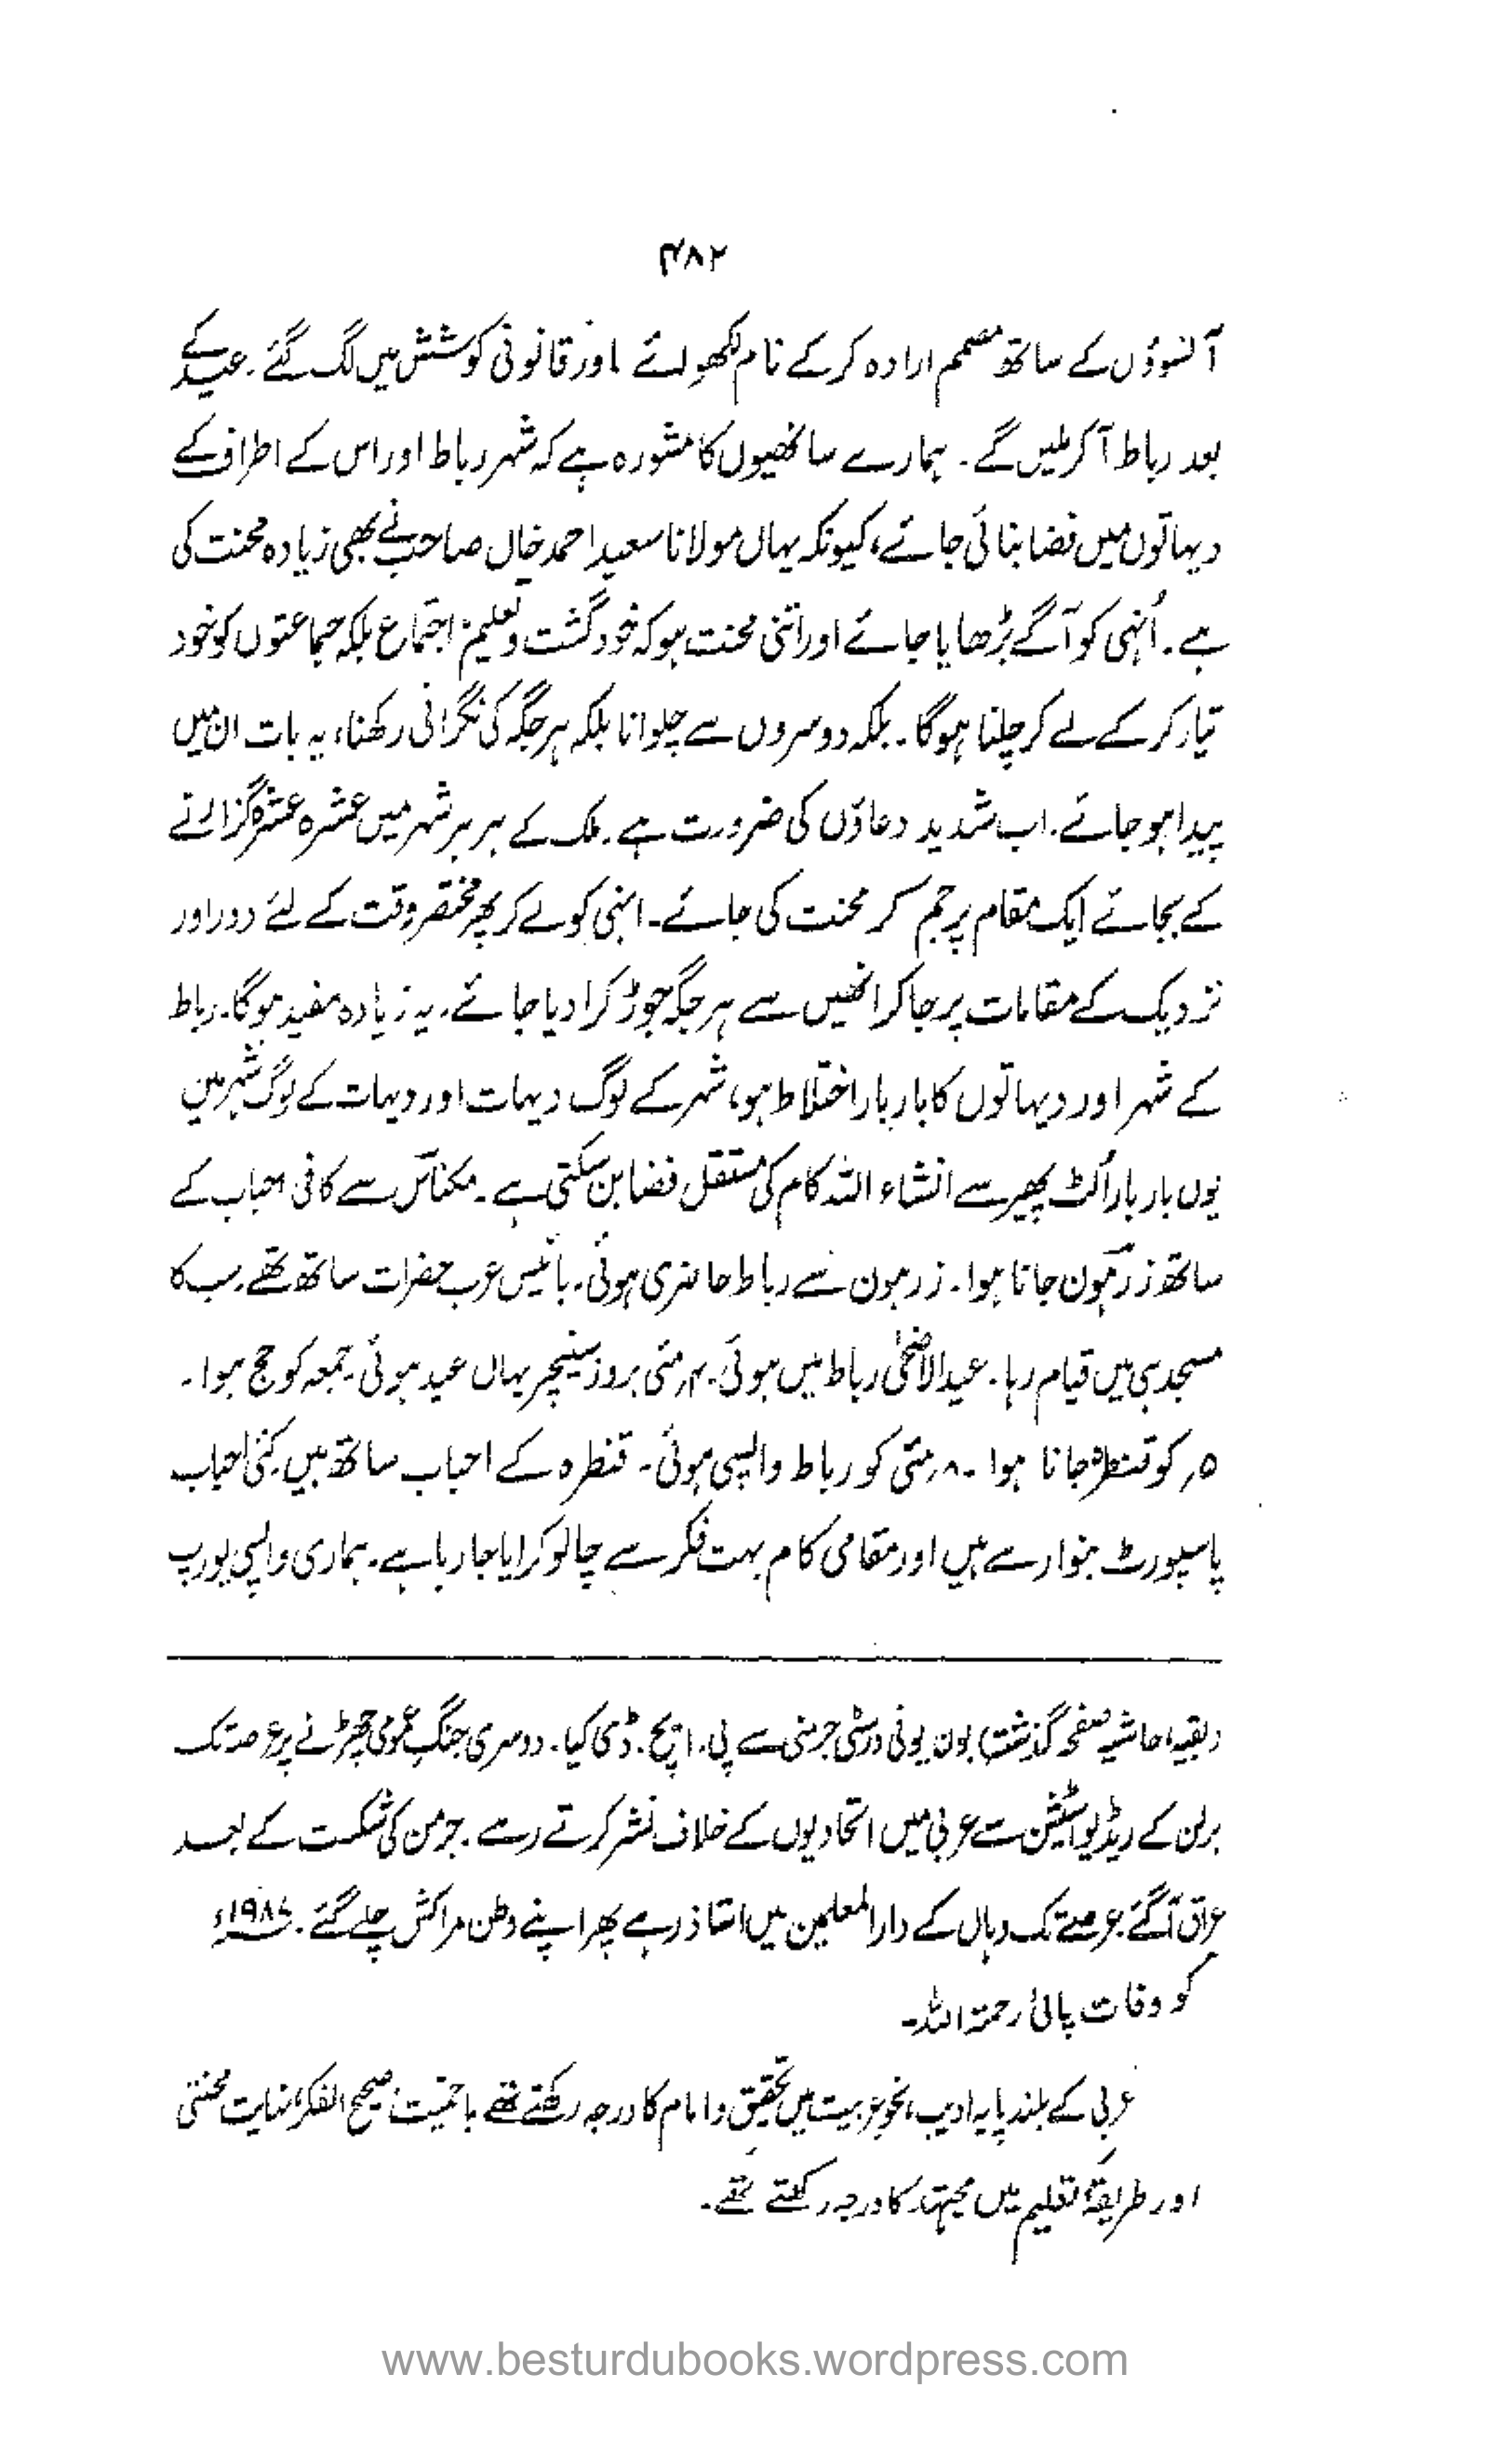 ۴۸۲
آنسوؤں کے ساتھ مصمم ارادہ کر کے نام لکھوائے اور قانونی کوشش میں لگ گئے۔ عید کے
بعد رباط آکر ملیں گے۔ ہمارے ساتھیوں کا مشورہ ہے کہ شہر رباط اور اس کے اطراف کے
دیہاتوں میں فضا بنائی جائے، کیونکہ یہاں مولانا سعید احمد خاں صاحب نے بھی زیادہ محنت کی
ہے۔ اُنہی کو آگے بڑھایا جائے اور اتنی محنت ہو کہ خود گشت و تعلیم، اجتماع بلکہ جماعتوں کو خود
تیار کر کے لے کر چلنا ہوگا۔ بلکہ دوسروں سے چلوانا بلکہ ہر جگہ کی نگرانی رکھنا، یہ بات ان میں
پیدا ہو جائے۔ اب شدید دعاؤں کی ضرورت ہے۔ ملک کے ہر ہر شہر میں عشرہ عشرہ گزارنے
کے بجائے ایک مقام پر جم کر محنت کی جائے۔ انہی کو لے کر پھر مختصر وقت کے لئے دور اور
نزدیک کے مقامات پر جا کر انھیں سے ہر جگہ جوڑ کرا دیا جائے۔ یہ زیادہ مفید ہوگا۔ رباط
کے شہر اور دیہاتوں کا بار بار اختلاط ہو، شہر کے لوگ دیہات اور دیہات کے لوگ شہر میں
یوں بار بار اُلٹ پھیر سے انشاء اللہ کام کی مستقل فضا بن سکتی ہے۔ مکناس سے کافی احباب کے
ساتھ زرہون جانا ہوا۔ زرہون سے رباط حاضری ہوئی۔ بائیس عرب حضرات ساتھ تھے۔ سب کا
مسجد ہی میں قیام رہا۔ عیدالاضحیٰ رباط میں ہوئی۔ ۴؍مئی بروز سنیچر یہاں عید ہوئی۔ جمعہ کو حج ہوا۔
۵؍ کو قنطرہ جانا ہوا۔ ۸؍مئی کو رباط واپسی ہوئی۔ قنطرہ کے احباب ساتھ ہیں۔ کئی احباب
پاسپورٹ بنوارہے ہیں اور مقامی کام بہت فکر سے چالو کرایا جا رہا ہے۔ ہماری واپسی یورپ
(بقیہ حاشیہ صفحہ گذشتہ) بون یونی ورسٹی جرمنی سے پی۔ ایچ۔ ڈی کیا۔ دوسری جنگ عمومی چھڑنے پر عرصہ تک
برلن کے ریڈیو اسٹیشن سے عربی میں اتحادیوں کے خلاف نشر کرتے رہے۔ جرمن کی شکست کے بعد
عراق آگئے۔ عرصے تک وہاں کے دارالمعلمین میں استاذ رہے پھر اپنے وطن مراکش چلے گئے۔ ۱۹۸۷ء
کو وفات پائی رحمۃ اللہ۔
عربی کے بلند پایہ ادیب، نحو عربیت میں تحقیق و امام کا درجہ رکھتے تھے باحمیت، صحیح الفکر، نہایت محنتی
اور طریقۂ تعلیم میں مجتہد کا درجہ رکھتے تھے۔
www.besturdubooks.wordpress.com